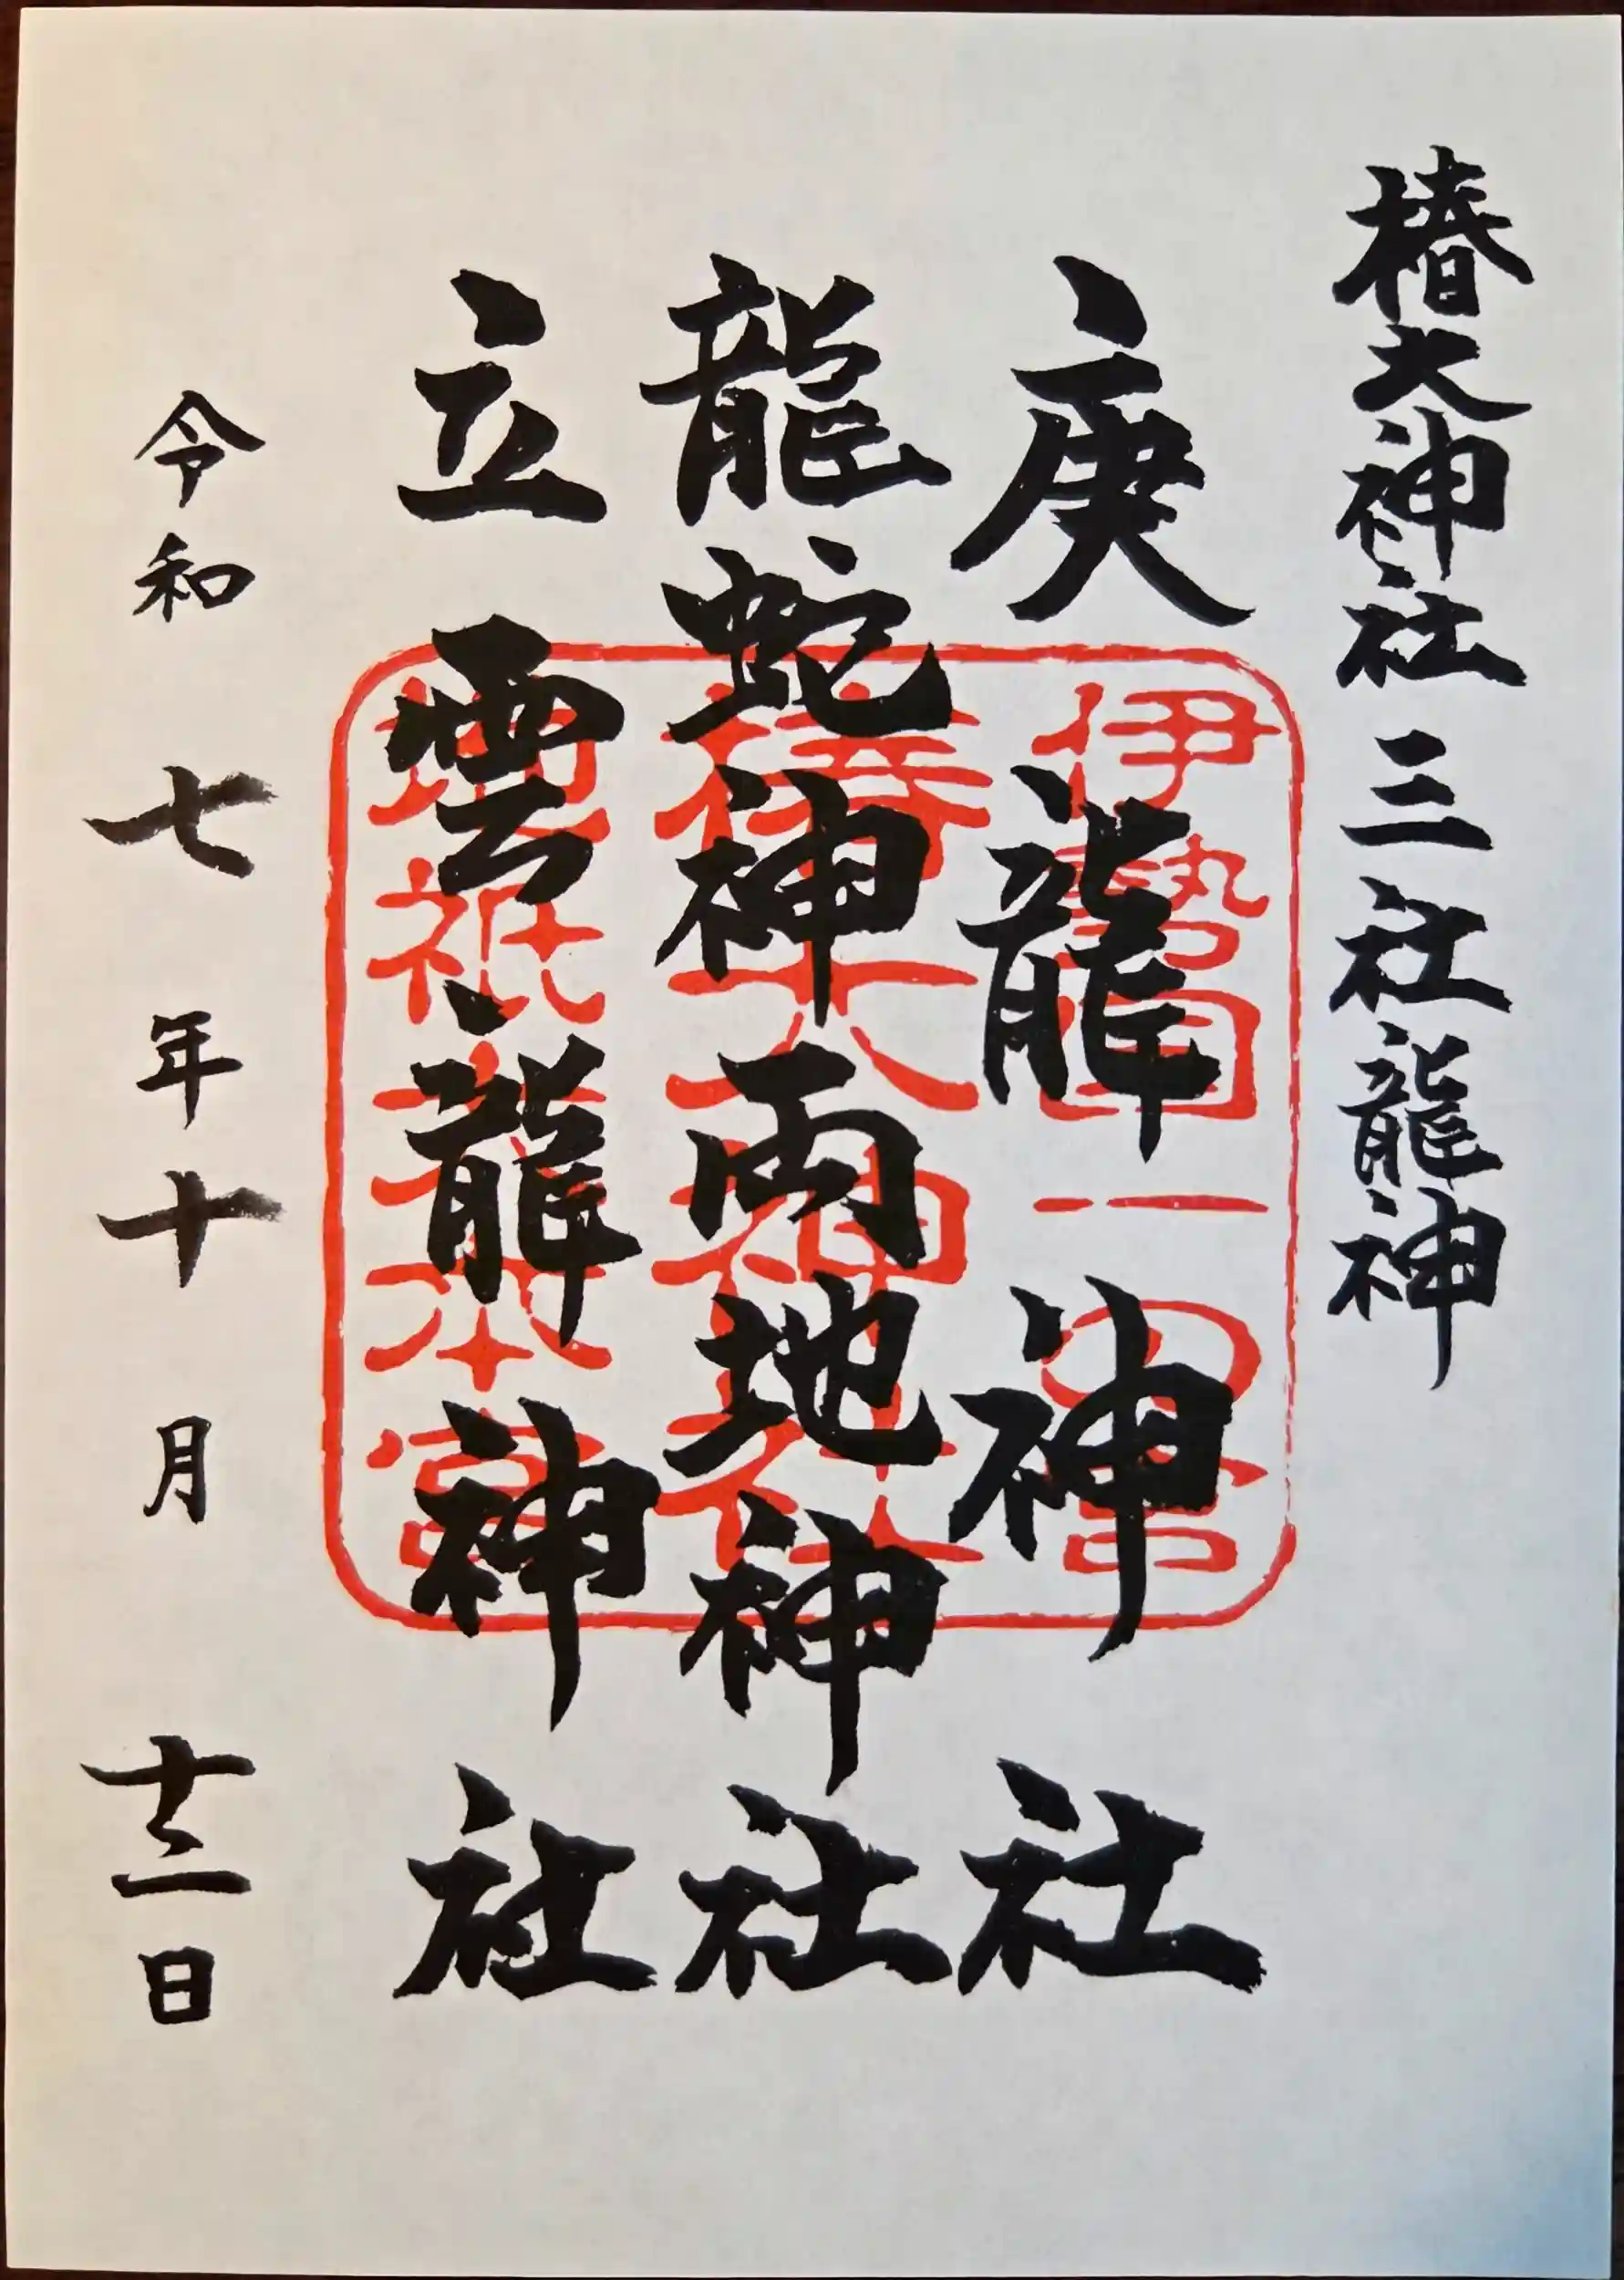 椿大神社三社龍神
庚龍神社
龍蛇神両地神社
立雲龍神社
令和七年十月十二日
伊勢国一の宮
椿大神社
地祇大本宮